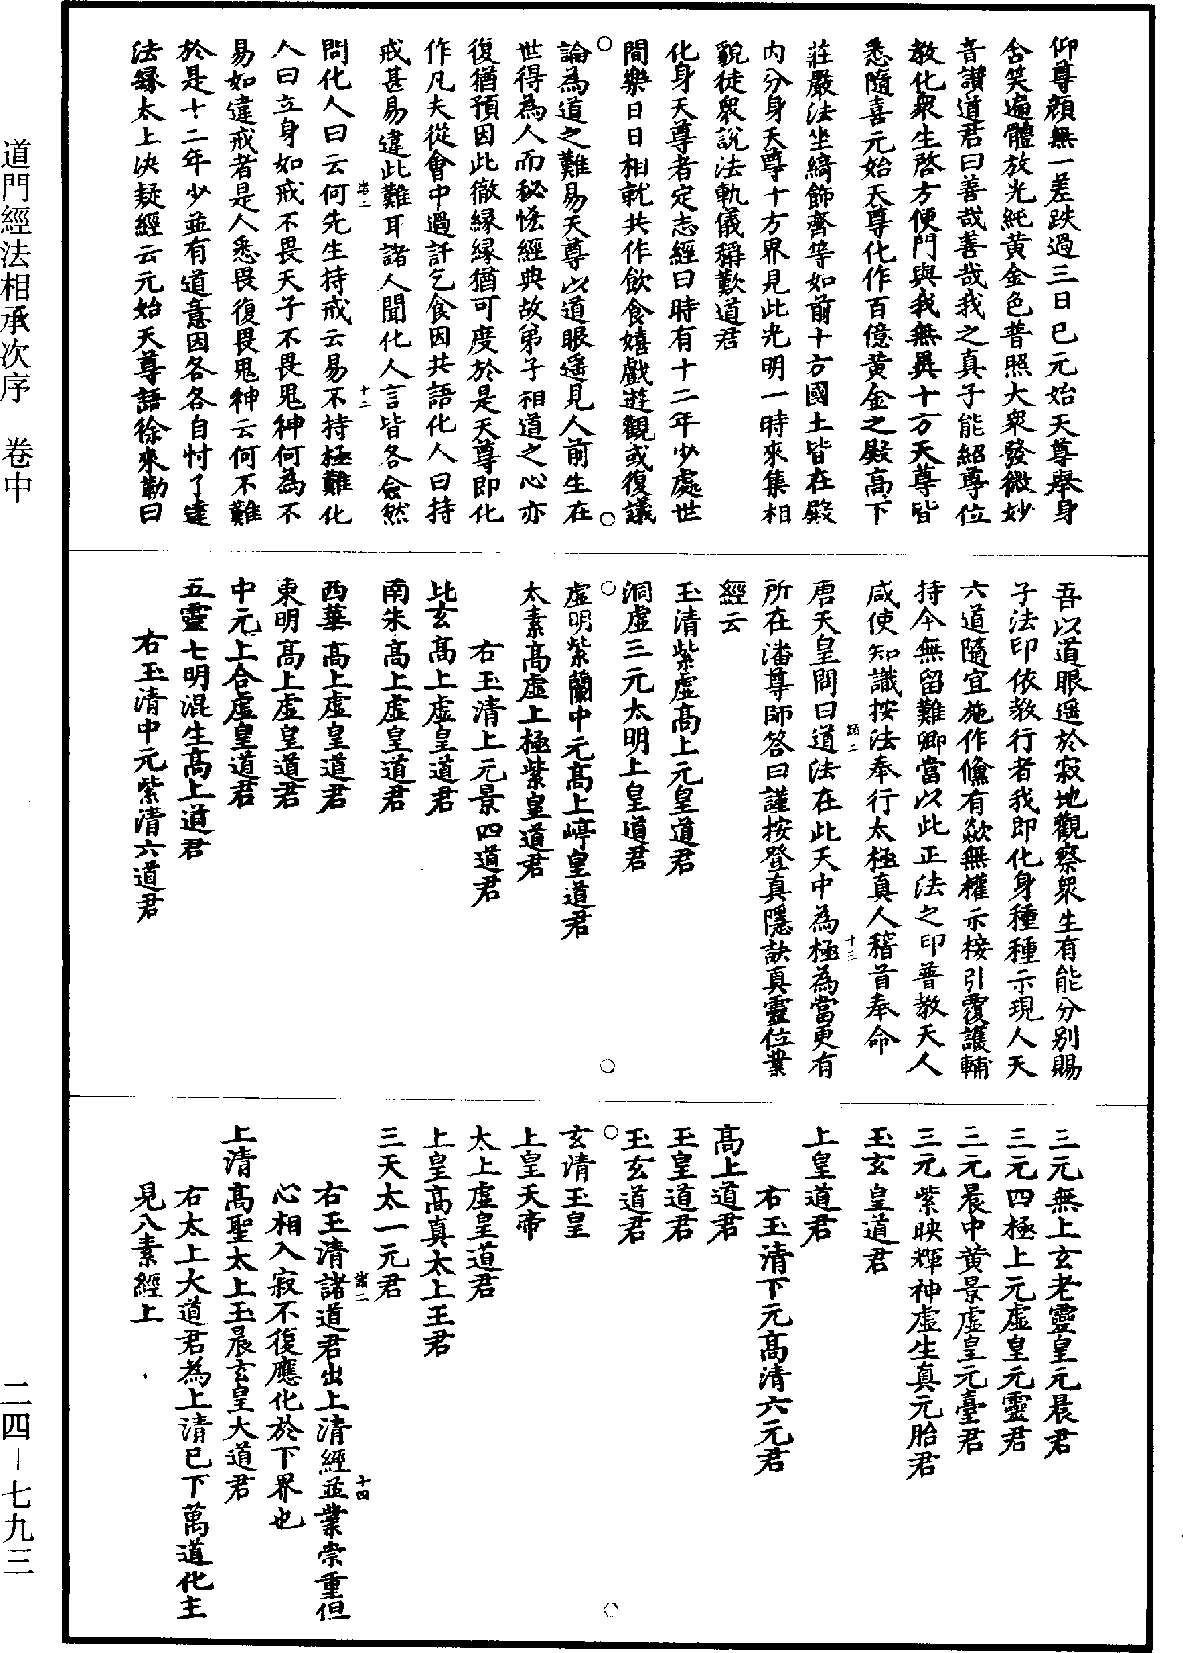 仰尊顔無一差跌過三日已元始天尊舉身
含笑遍體放光純黄金色普照大衆發微妙
音讃道君曰善哉善哉我之真子能紹尊位
教化衆生啓方便門與我無異十方天尊皆
悉隨喜元始天尊化作百億黄金之殿高下
莊嚴法坐綺飾齊等如前十方國土皆在殿
内分身天尊十方界見此光明一時來集相
貌徒衆説法軌儀稱歎道君
化身天尊者定志經曰時有十二年少處世
間樂日日相就共作飲食嬉戲遊觀或復議
論為道之難易天尊以道眼遥見人前生在
世得為人而秘恡經典故弟子相道之心亦
復猶預因此徹縁縁猶可度於是天尊即化
作凡夫從會中過託乞食因共語化人曰持
戒甚易違此難耳諸人聞化人言皆各僉然
問化人曰云何先生持戒云易不持極難化
人曰立身如戒不畏天子不畏鬼神何為不
易如違戒者是人悉畏復畏鬼神云何不難
於是十二年少並有道意因各各自忖了達
法縁太上决疑經云元始天尊語徐來勒曰
吾以道眼遥於寂地觀察衆生有能分别賜
子法印依教行者我即化身種種示現人天
六道隨宜施作儵有歘無權示接引覆護輔
持令無留難卿當以此正法之印普教天人
咸使知識按法奉行太極真人稽首奉命
唐天皇問曰道法在此天中為極為當更有
所在潘尊師答曰謹按登真隱訣真靈位業
經云
玉清紫虚高上元皇道君
洞虚三元太明上皇道君
虚明紫蘭中元高上崢皇道君
太素高虚上極紫皇道君
右玉清上元景四道君
北玄高上虚皇道君
南朱高上虚皇道君
西華高上虚皇道君
東明高上虚皇道君
中元上合虚皇道君
五靈七明混生高上道君
右玉清中元紫清六道君
三元無上玄老靈皇元晨君
三元四極上元虚皇元靈君
三元晨中黄景虚皇元臺君
三元紫映輝神虚生真元胎君
玉玄皇道君
上皇道君
右玉清下元高清六元君
高上道君
玉皇道君
玉玄道君
玄清玉皇
上皇天帝
太上虚皇道君
上皇高真太上王君
三天太一元君
右玉清諸道君出上清經並業崇重但
心相入寂不復應化於下界也
上清高聖太上玉晨玄皇大道君
右太上大道君為上清已下萬道化主
見八素經上
道門經法相承次序　卷中
二四－七九三